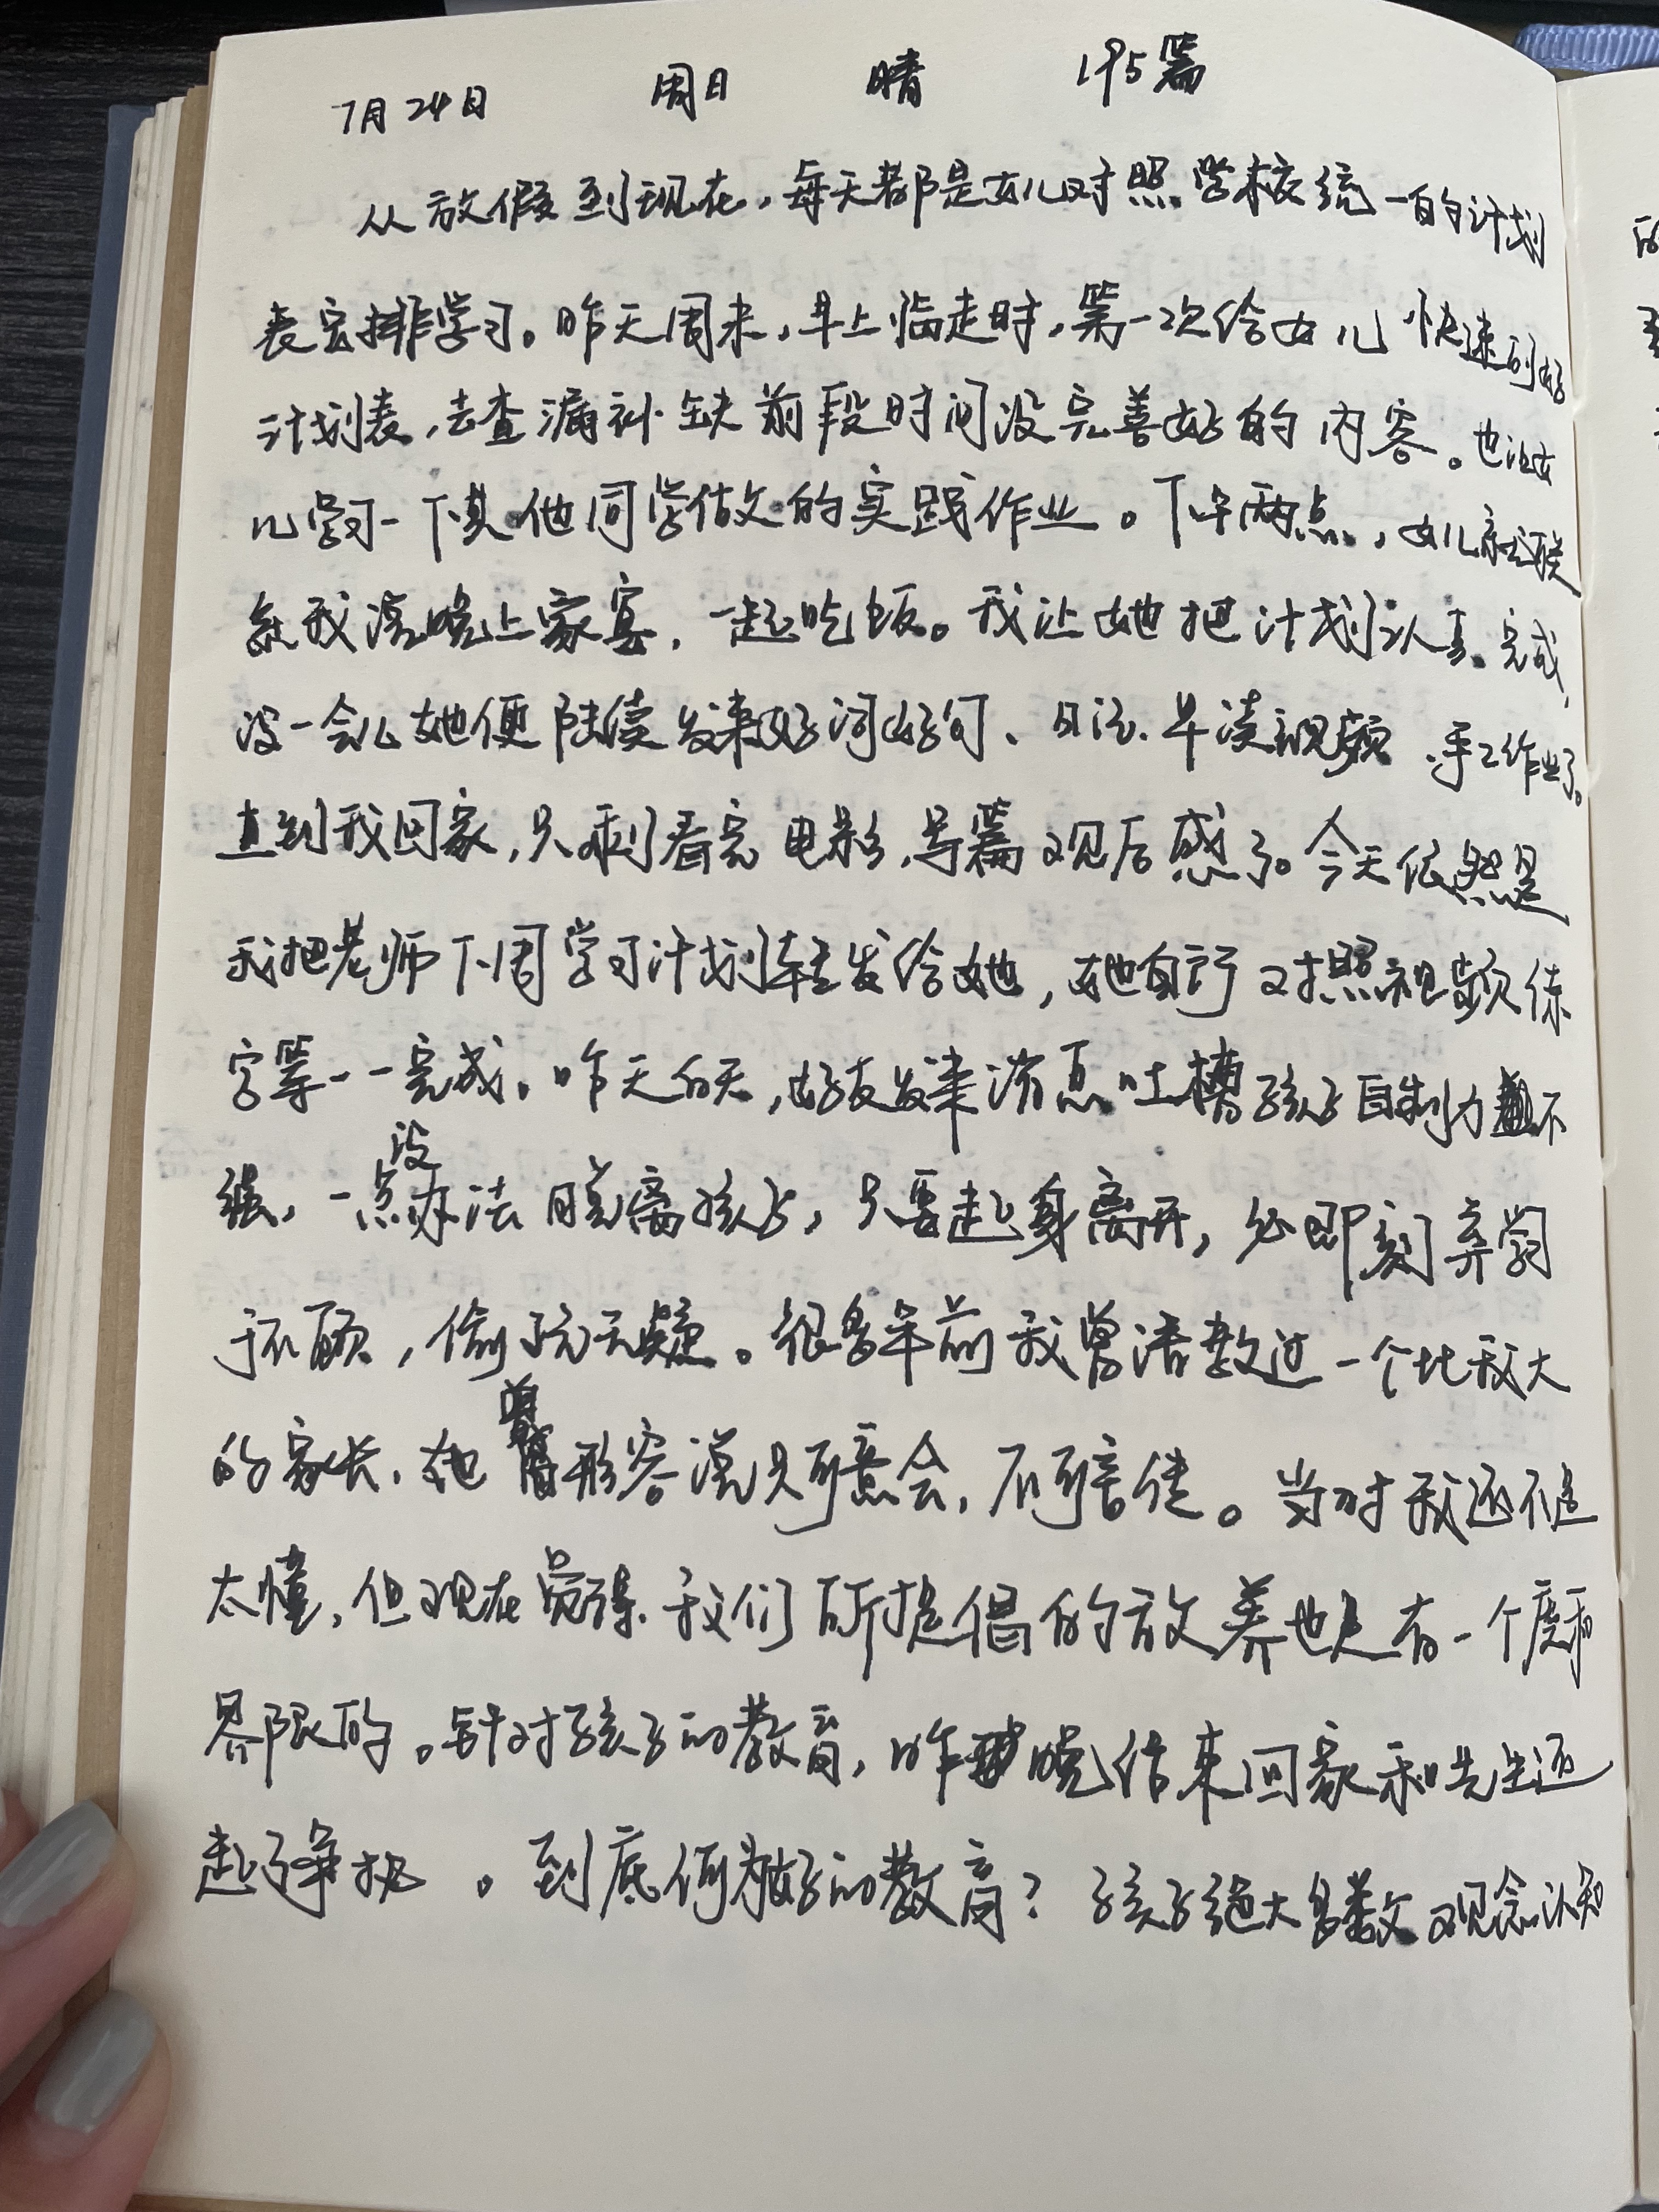 7月24日 周日 晴 195篇
从放假到现在，每天都是女儿对照学校统一的计划
表安排学习。昨天周末，早上临走时，第一次给女儿快速列好
计划表，去查漏补缺前段时间没完善好的内容。也让女
儿学习一下其他同学做的实践作业。下午两点，女儿就联
系我说晚上家宴，一起吃饭。我让她把计划认真完成，
没一会儿她便陆续发来好词好句、日记、早读视频、手工作业了。
直到我回家，只剩看完电影，写篇观后感了。今天依然是
我把老师下周学习计划转发给她，她自行对照视频练
字等一一完成。昨天白天，好友发来消息吐槽孩子自制力不
强，一点没办法脱离孩子，只要起身离开，必即刻弃学习
于不顾，偷玩无疑。很多年前我曾请教过一个比我大
的家长，她曾形容说只可意会，不可言传。当时我还不是
太懂，但现在觉得，我们所提倡的放养也是有一个度和
界限的。针对孩子的教育，昨晚结束回家和先生还
起了争执。到底何为好的教育？孩子绝大多数观念认知
的